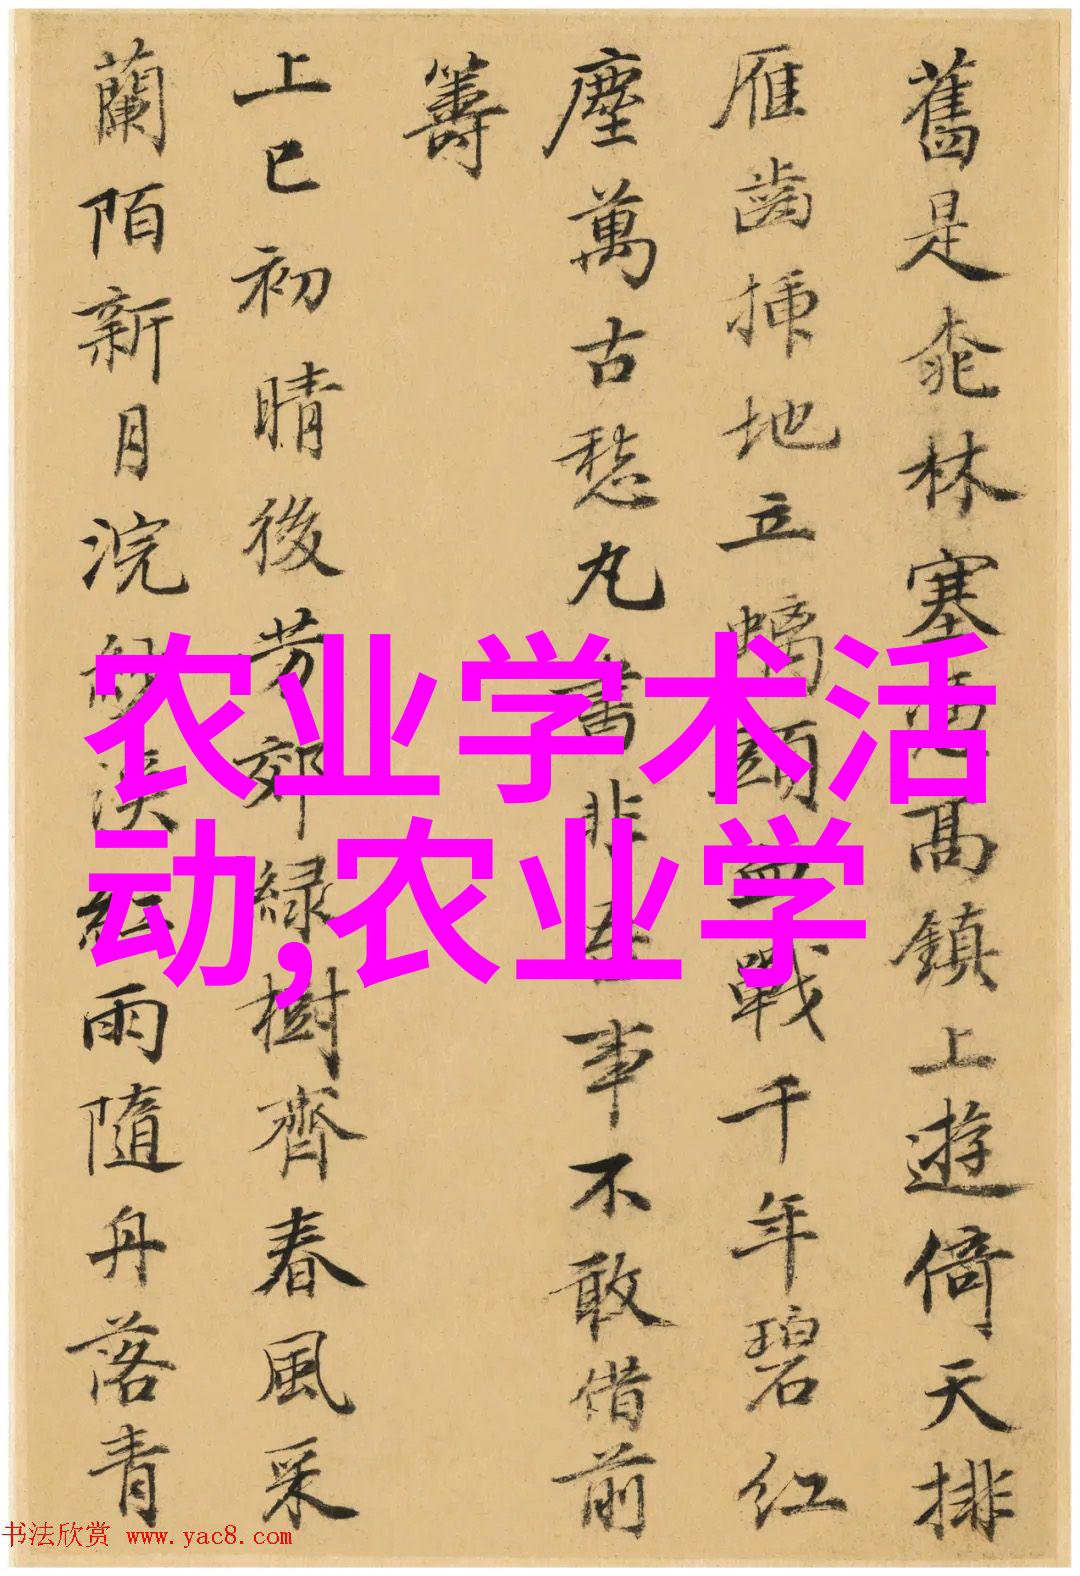 舊是桃林塞高鎮上遊倚天排
雁齒插地立螭頭血戰千年碧紅
塵萬古愁丸書非吾事不敢借前
籌
上巳初晴後芳郊緑樹齊春風采
蘭陌新月浣紗溪紅雨隨舟落青
农业学术活
动,农业学
书法欣赏 www.yac8.com